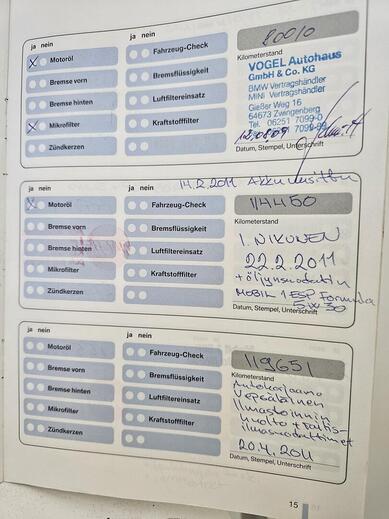 ja nein
ja nein
Motoröl
Bremse vorn
Bremse hinten
Mikrofilter
Zündkerzen
Fahrzeug-Check
Bremsflüssigkeit
Luftfiltereinsatz
Kraftstofffilter
80010
Kilometerstand
VOGEL Autohaus
GmbH & Co. KG
BMW Vertragshändler
MINI Vertragshändler
Gießer Weg 16
64673 Zwingenberg
Tel. 06251 7099-0
7099-99
12.08.09
Datum, Stempel, Unterschrift
14.2.2011
ja nein
ja nein
Motoröl
Bremse vorn
Bremse hinten
Mikrofilter
Zündkerzen
Fahrzeug-Check
Bremsflüssigkeit
Luftfiltereinsatz
Kraftstofffilter
114450
Kilometerstand
I. NIKUNEN
22.2.2011
+öljynsuodatin
MOBIL 1 ESP Formula
5W30
Datum, Stempel, Unterschrift
ja nein
ja nein
Motoröl
Bremse vorn
Bremse hinten
Mikrofilter
Zündkerzen
Fahrzeug-Check
Bremsflüssigkeit
Luftfiltereinsatz
Kraftstofffilter
119651
Kilometerstand
Autokorjaamo
Vepsäläinen
Ilmastoinnin
huolto + raitis-
ilmasuodattimet
20.4.2011
Datum, Stempel, Unterschrift
15